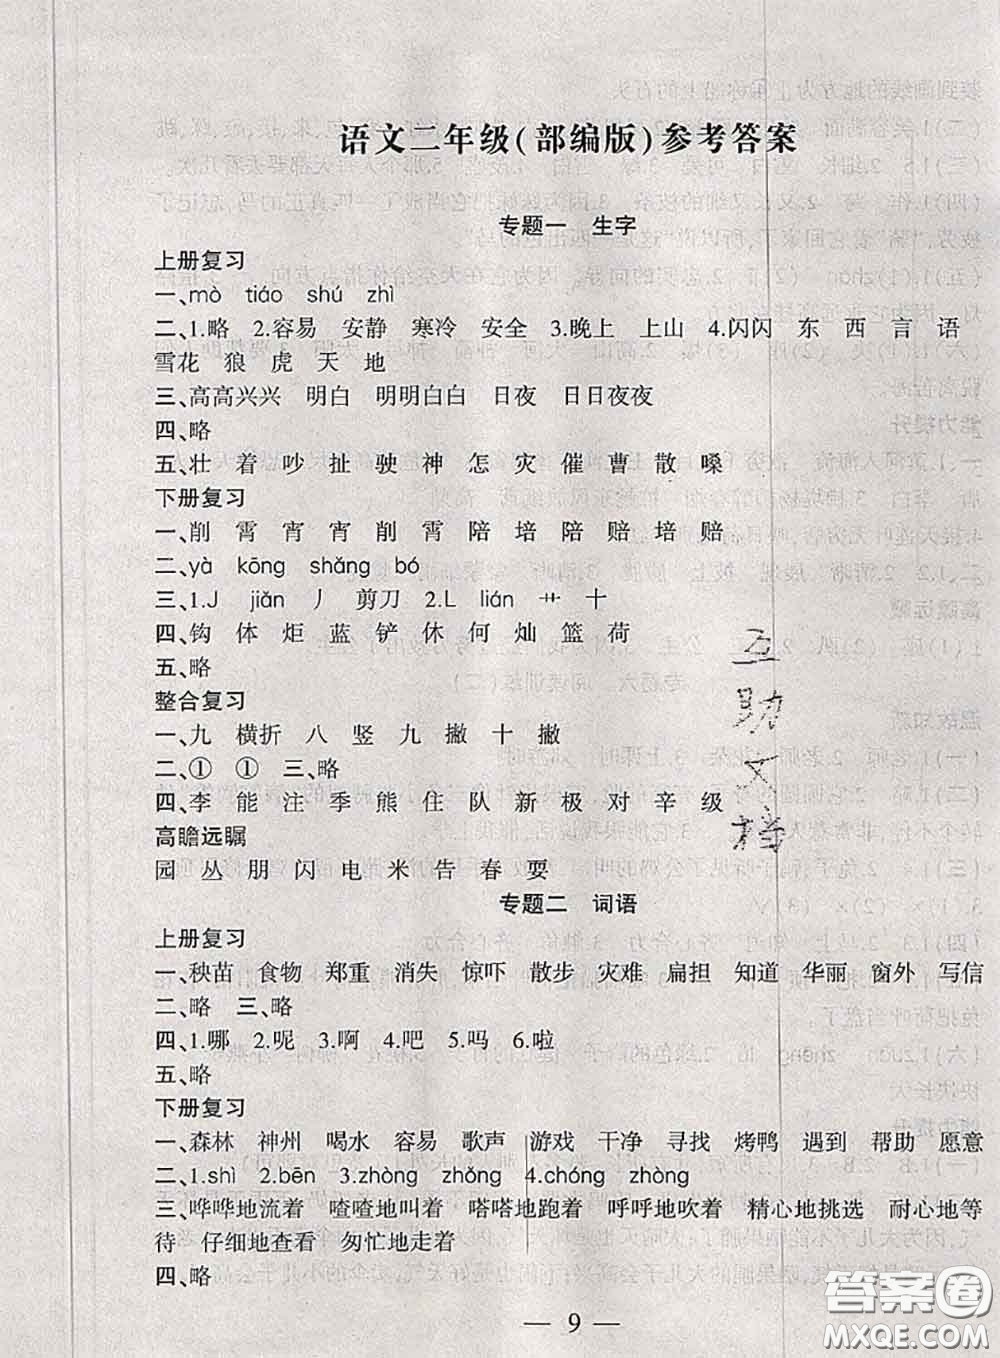 语文二年级(部编版)参考答案
专题一 生字
上册复习
一、mò tiáo shú zhì
二、1.略 2.容易 安静 寒冷 安全 3.晚上 上山 4.闪闪 东 西 言 语
雪花 狼 虎 天 地
三、高高兴兴 明白 明明白白 日夜 日日夜夜
四、略
五、壮 着 吵 扯 驶 神 怎 灾 催 曹 散 嗓
下册复习
一、削 霄 宵 宵 削 霄 陪 培 陪 赔 培 赔
二、yà kōng shǎng bó
三、1.J jiǎn 丿 剪刀 2.L lián 艹 十
四、钩 体 炬 蓝 铲 休 何 灿 篮 荷
五、略
整合复习
一、九 横折 八 竖 九 撇 十 撇
二、① ① 三、略
四、李 能 注 季 熊 住 队 新 极 对 辛 级
高瞻远瞩
园 丛 朋 闪 电 米 告 春 要
专题二 词语
上册复习
一、秧苗 食物 郑重 消失 惊吓 散步 灾难 扁担 知道 华丽 窗外 写信
二、略 三、略
四、1.哪 2.呢 3.啊 4.吧 5.吗 6.啦
五、略
下册复习
一、森林 神州 喝水 容易 歌声 游戏 干净 寻找 烤鸭 遇到 帮助 愿意
二、1.shì 2.bēn 3.zhòng zhǒng 4.chóng zhòng
三、哗哗地流着 喳喳地叫着 嗒嗒地跑着 呼呼地吹着 精心地挑选 耐心地等
待 仔细地查看 匆忙地走着
四、略
— 9 —
互
助
文
档
答案圈
MXQE.COM